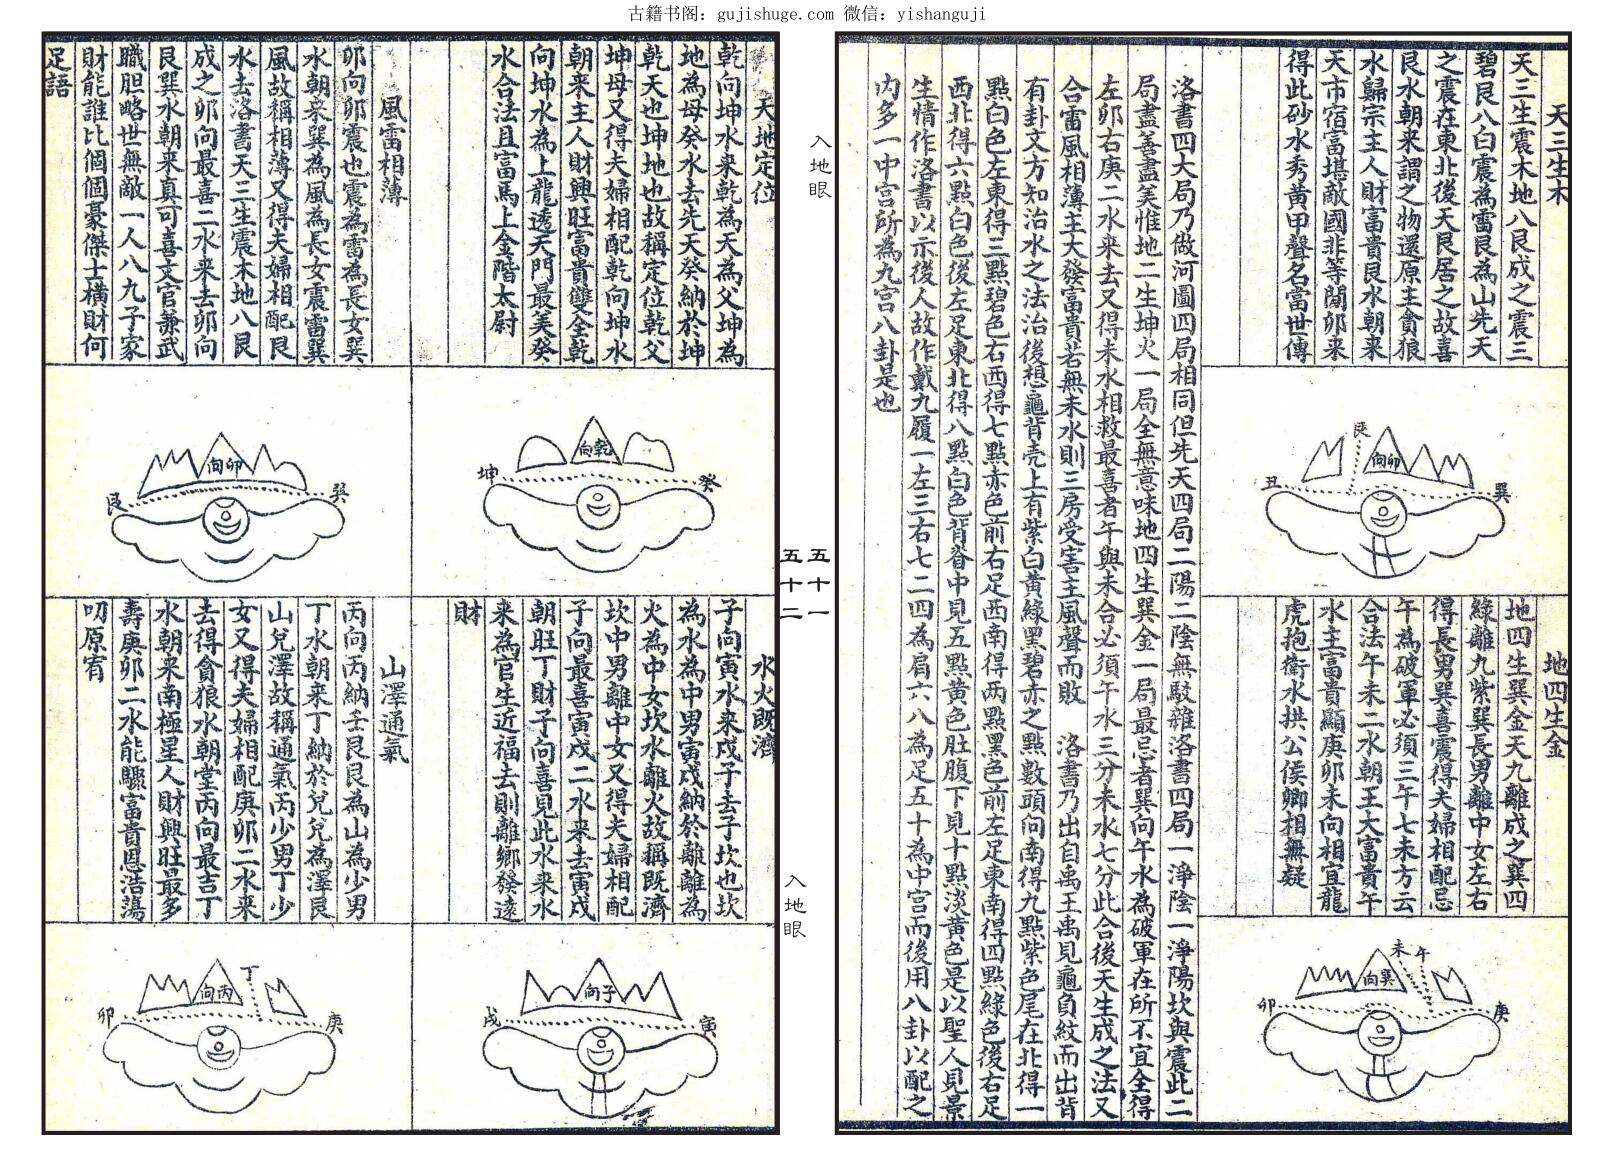 古籍书阁：gujishuge.com 微信：yishanguji
天三生木
天三生震木地八艮成之震三
碧艮八白震為雷艮為山先天
之震在東北後天艮居之故喜
艮水朝来謂之物還原主貪狼
水歸宗主人財富貴艮水朝来
天市宿富堪敵國非等閒卯来
得此砂水秀黄甲聲名當世傳
艮
卯向
丑
巽
地四生金
地四生巽金天九離成之巽四
綠離九紫巽長男離中女左右
得長男巽喜震得夫婦相配忌
午為破軍必須三午七未方云
合法午未二水朝王大富貴午
水主富貴顯庚卯未向相宜龍
虎抱衛水拱公侯卿相無疑
未
午
巽向
卯
庚
洛書四大局乃做河圖四局相同但先天四局二陽二陰無駁雜洛書四局一淨陰一淨陽坎與震此二
局盡善盡美惟地二生坤火一局全無意味地四生巽金一局最忌者巽向午水為破軍在所不宜全得
左卯右庚二水来去又得未水相救最喜者午與未合必須午水三分未水七分此合後天生成之法又
合雷風相薄主大發富貴若無未水則三房受害主風聲而敗　洛書乃出自禹王禹見龜負紋而出背
有卦文方知治水之法治後想龜背壳上有紫白黄綠黑碧赤之點數頭向南得九點紫色尾在北得一
點白色左東得三點碧色右西得七點赤色前右足西南得两點黑色前左足東南得四點綠色後右足
西北得六點白色後左足東北得八點白色背脊中見五點黄色肚腹下見十點淡黄色是以聖人見景
生情作洛書以示後人故作戴九履一左三右七二四為肩六八為足五十為中宫而後用八卦以配之
内多一中宫所為九宫八卦是也
入地眼
五十一
五十二
入地眼
天地定位
乾向坤水来乾為天為父坤為
地為母癸水去先天癸納於坤
乾天也坤地也故稱定位乾父
坤母又得夫婦相配乾向坤水
朝来主人財興旺富貴雙全乾
向坤水為上龍透天門最美癸
水合法且富馬上金階太尉
乾向
坤
癸
風雷相薄
卯向卯震也震為雷為長女巽
水朝来巽為風為長女震雷巽
風故稱相薄又得夫婦相配艮
水去洛書天三生震木地八艮
成之卯向最喜二水来去卯向
艮巽水朝来真可喜文官兼武
職胆略世無敵一人八九子家
財能誰比個個豪傑士橫財何
足語
卯向
艮
巽
水火既濟
子向寅水来戌子去子坎也坎
為水為中男寅戌納於離離為
火為中女坎水離火故稱既濟
坎中男離中女又得夫婦相配
子向最喜寅戌二水来去寅戌
朝旺丁財子向喜見此水来水
来為官生近福去則離鄉發遠
財
子向
戌
寅
山澤通氣
丙向丙納於艮艮為山為少男
丁水朝来丁納於兌兌為澤艮
山兌澤故稱通氣丙少男丁少
女又得夫婦相配庚卯二水来
去得貪狼水朝堂丙向最吉丁
水朝来南極星人財興旺最多
壽庚卯二水能驟富貴恩浩蕩
叨原宥
丁
丙向
卯
庚